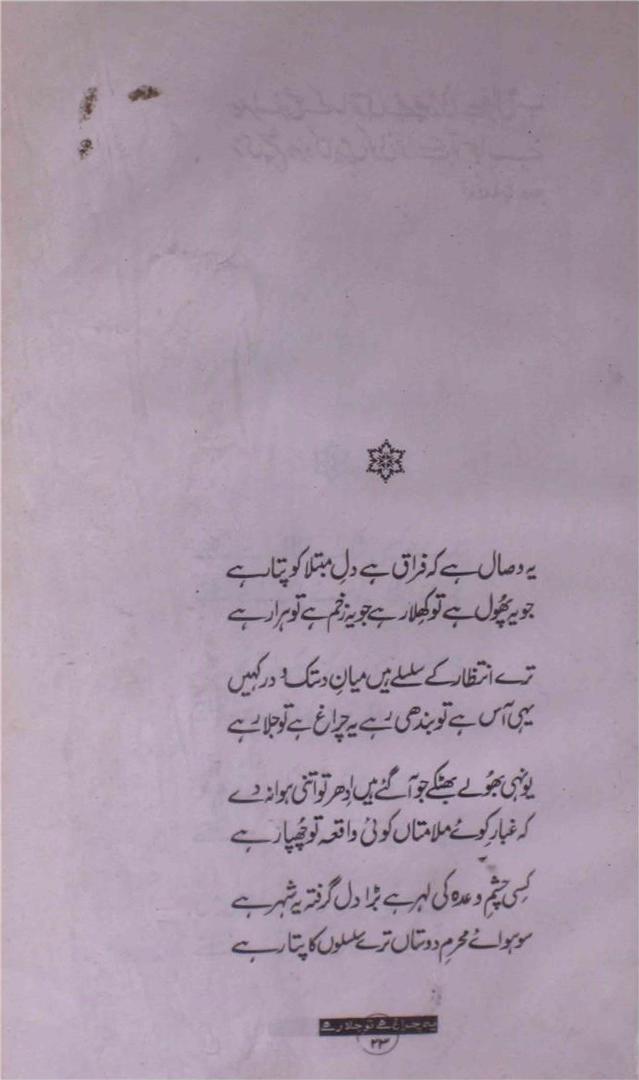 یہ وصال ہے کہ فراق ہے دلِ مبتلا کو پتا رہے
جو یہ پھُول ہے تو کھِلا رہے جو یہ زخم ہے تو ہرا رہے
ترے انتظار کے سلسلے ہیں میانِ دستک و در کہیں
یہی آس ہے تو بندھی رہے یہ چراغ ہے تو جلا رہے
یونہی بھُولے بھٹکے جو آ گئے ہیں اِدھر تو اتنی ہوا نہ دے
کہ غبارِ کوئے ملامتاں کوئی واقعہ تو چھُپا رہے
کسی چشمِ وعدہ کی لہر ہے بڑا دل گرفتہ یہ شہر ہے
سو ہوائے محرمِ دوستاں ترے سلسلوں کا پتا رہے
یہ چراغ ہے تو جلا رہے
۲۳